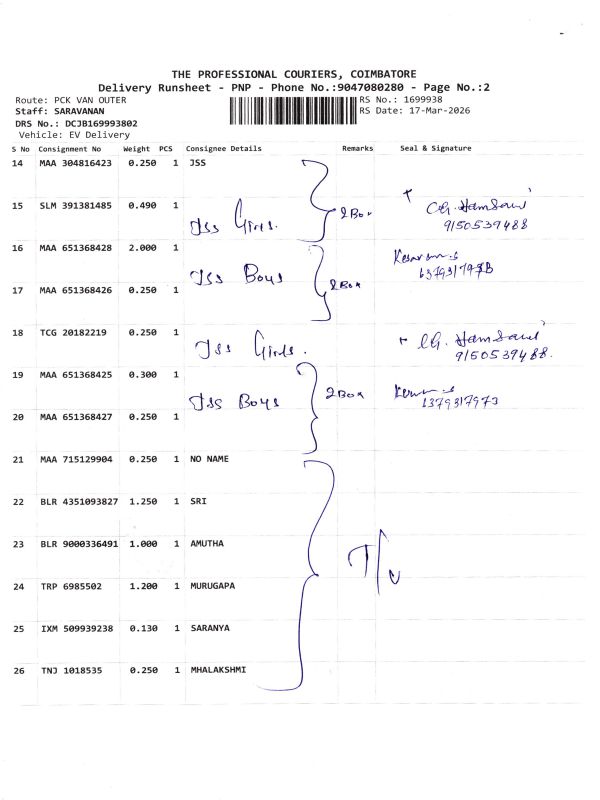 THE PROFESSIONAL COURIERS, COIMBATORE
Delivery Runsheet - PNP - Phone No.:9047080280 - Page No.:2
Route: PCK VAN OUTER
Staff: SARAVANAN
DRS No.: DCJB169993802
Vehicle: EV Delivery
RS No.: 1699938
RS Date: 17-Mar-2026
S No Consignment No Weight PCS Consignee Details Remarks Seal & Signature
14 MAA 304816423 0.250 1 JSS
15 SLM 391381485 0.490 1 Jss Girls. 2 Box CG. Hamsani 9150539488
16 MAA 651368428 2.000 1 Jss Boys 2 Box
17 MAA 651368426 0.250 1
18 TCG 20182219 0.250 1 Jss Girls. CG. Hamsani 9150539488.
19 MAA 651368425 0.300 1 Jss Boys 2 Box 6379317973
20 MAA 651368427 0.250 1
21 MAA 715129904 0.250 1 NO NAME
22 BLR 4351093827 1.250 1 SRI
23 BLR 9000336491 1.000 1 AMUTHA
24 TRP 6985502 1.200 1 MURUGAPA
25 IXM 509939238 0.130 1 SARANYA
26 TNJ 1018535 0.250 1 MHALAKSHMI